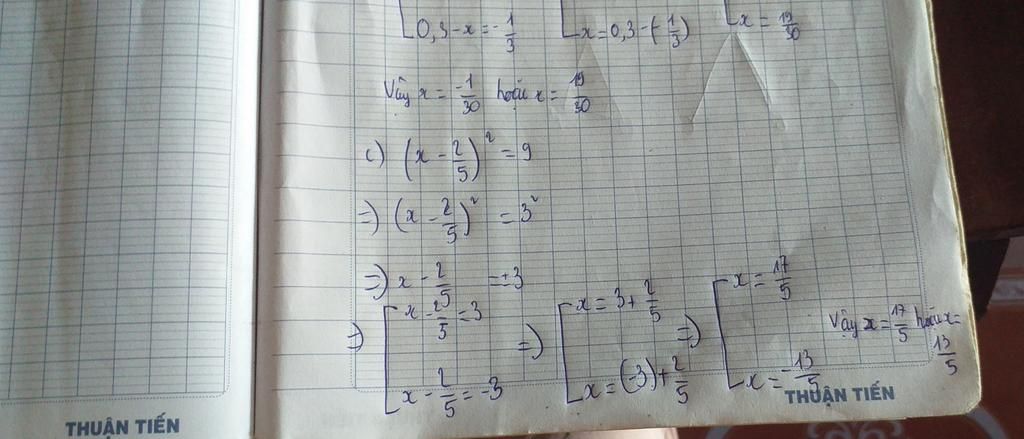 0,3 - x = -1/3    x = 0,3 - (-1/3)    x = 19/30
Vậy x = -1/30 hoặc x = 19/30
c) (x - 2/5)² = 9
=> (x - 2/5)² = 3²
=> x - 2/5 = ±3
=> [ x - 2/5 = 3 => [ x = 3 + 2/5 => [ x = 17/5
x - 2/5 = -3    x = (-3) + 2/5    x = -13/5
Vậy x = 17/5 hoặc x =
13/5
THUẬN TIẾN
THUẬN TIẾN